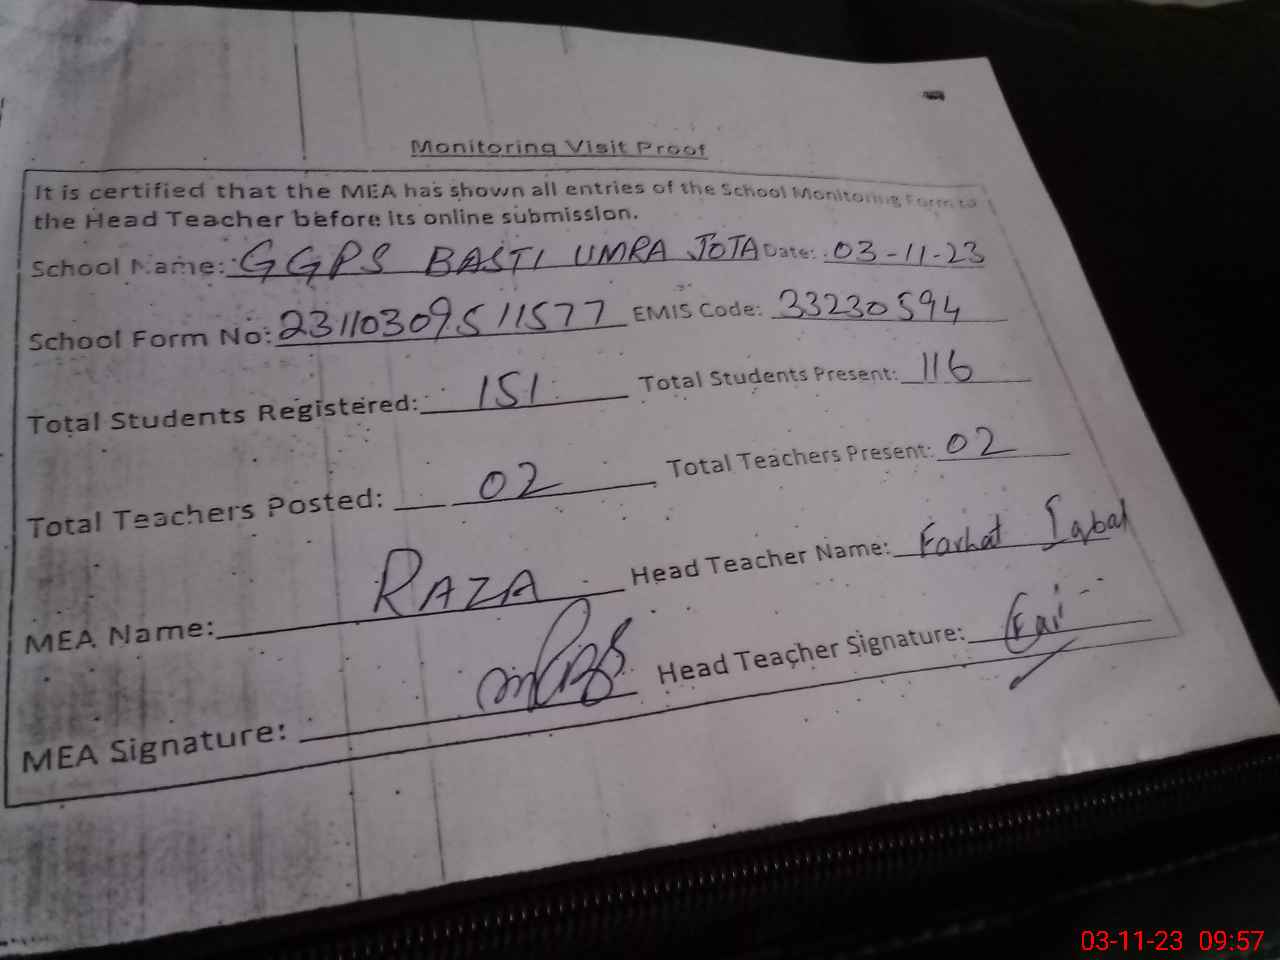 Monitoring Visit Proof
It is certified that the MEA has shown all entries of the School Monitoring Form to
the Head Teacher before its online submission.
School Name: GGPS BASTI UMRA JOTA Date: 03-11-23
School Form No: 23110309511577 EMIS Code: 33230594
Total Students Registered: 151 Total Students Present: 116
Total Teachers Posted: 02 Total Teachers Present: 02
MEA Name: RAZA Head Teacher Name: Farhat Iqbal
MEA Signature: Head Teacher Signature:
03-11-23 09:57